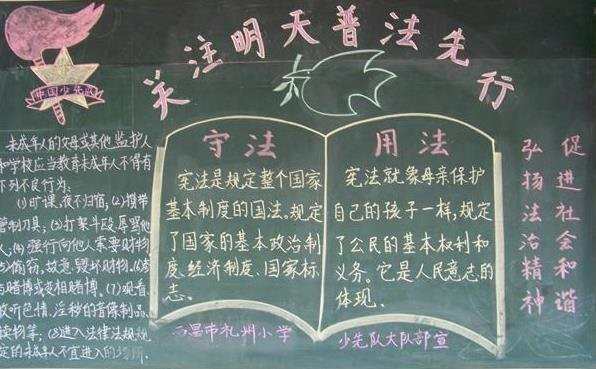 关注明天普法先行
中国少先队
未成年人的父母或其他监护人
和学校应当教育未成年人不得有
下列不良行为:
(1)旷课、夜不归宿;(2)携带
管制刀具;(3)打架斗殴、辱骂他
人;(4)强行向他人索要财物
(5)偷窃、故意毁坏财物;(6)参
与赌博或变相赌博;(7)观看
收听色情、淫秽的音像制品、
读物等;(8)进入法律法规规
定的未成年人不宜进入的场所.
守法
宪法是规定整个国家
基本制度的国法、规定
了国家的基本政治制
度、经济制度、国家标
志。
西昌市礼州小学
用法
宪法就象母亲保护
自己的孩子一样,规定
了公民的基本权利和
义务。它是人民意志的
体现。
少先队大队部宣
弘扬法治精神
促进社会和谐